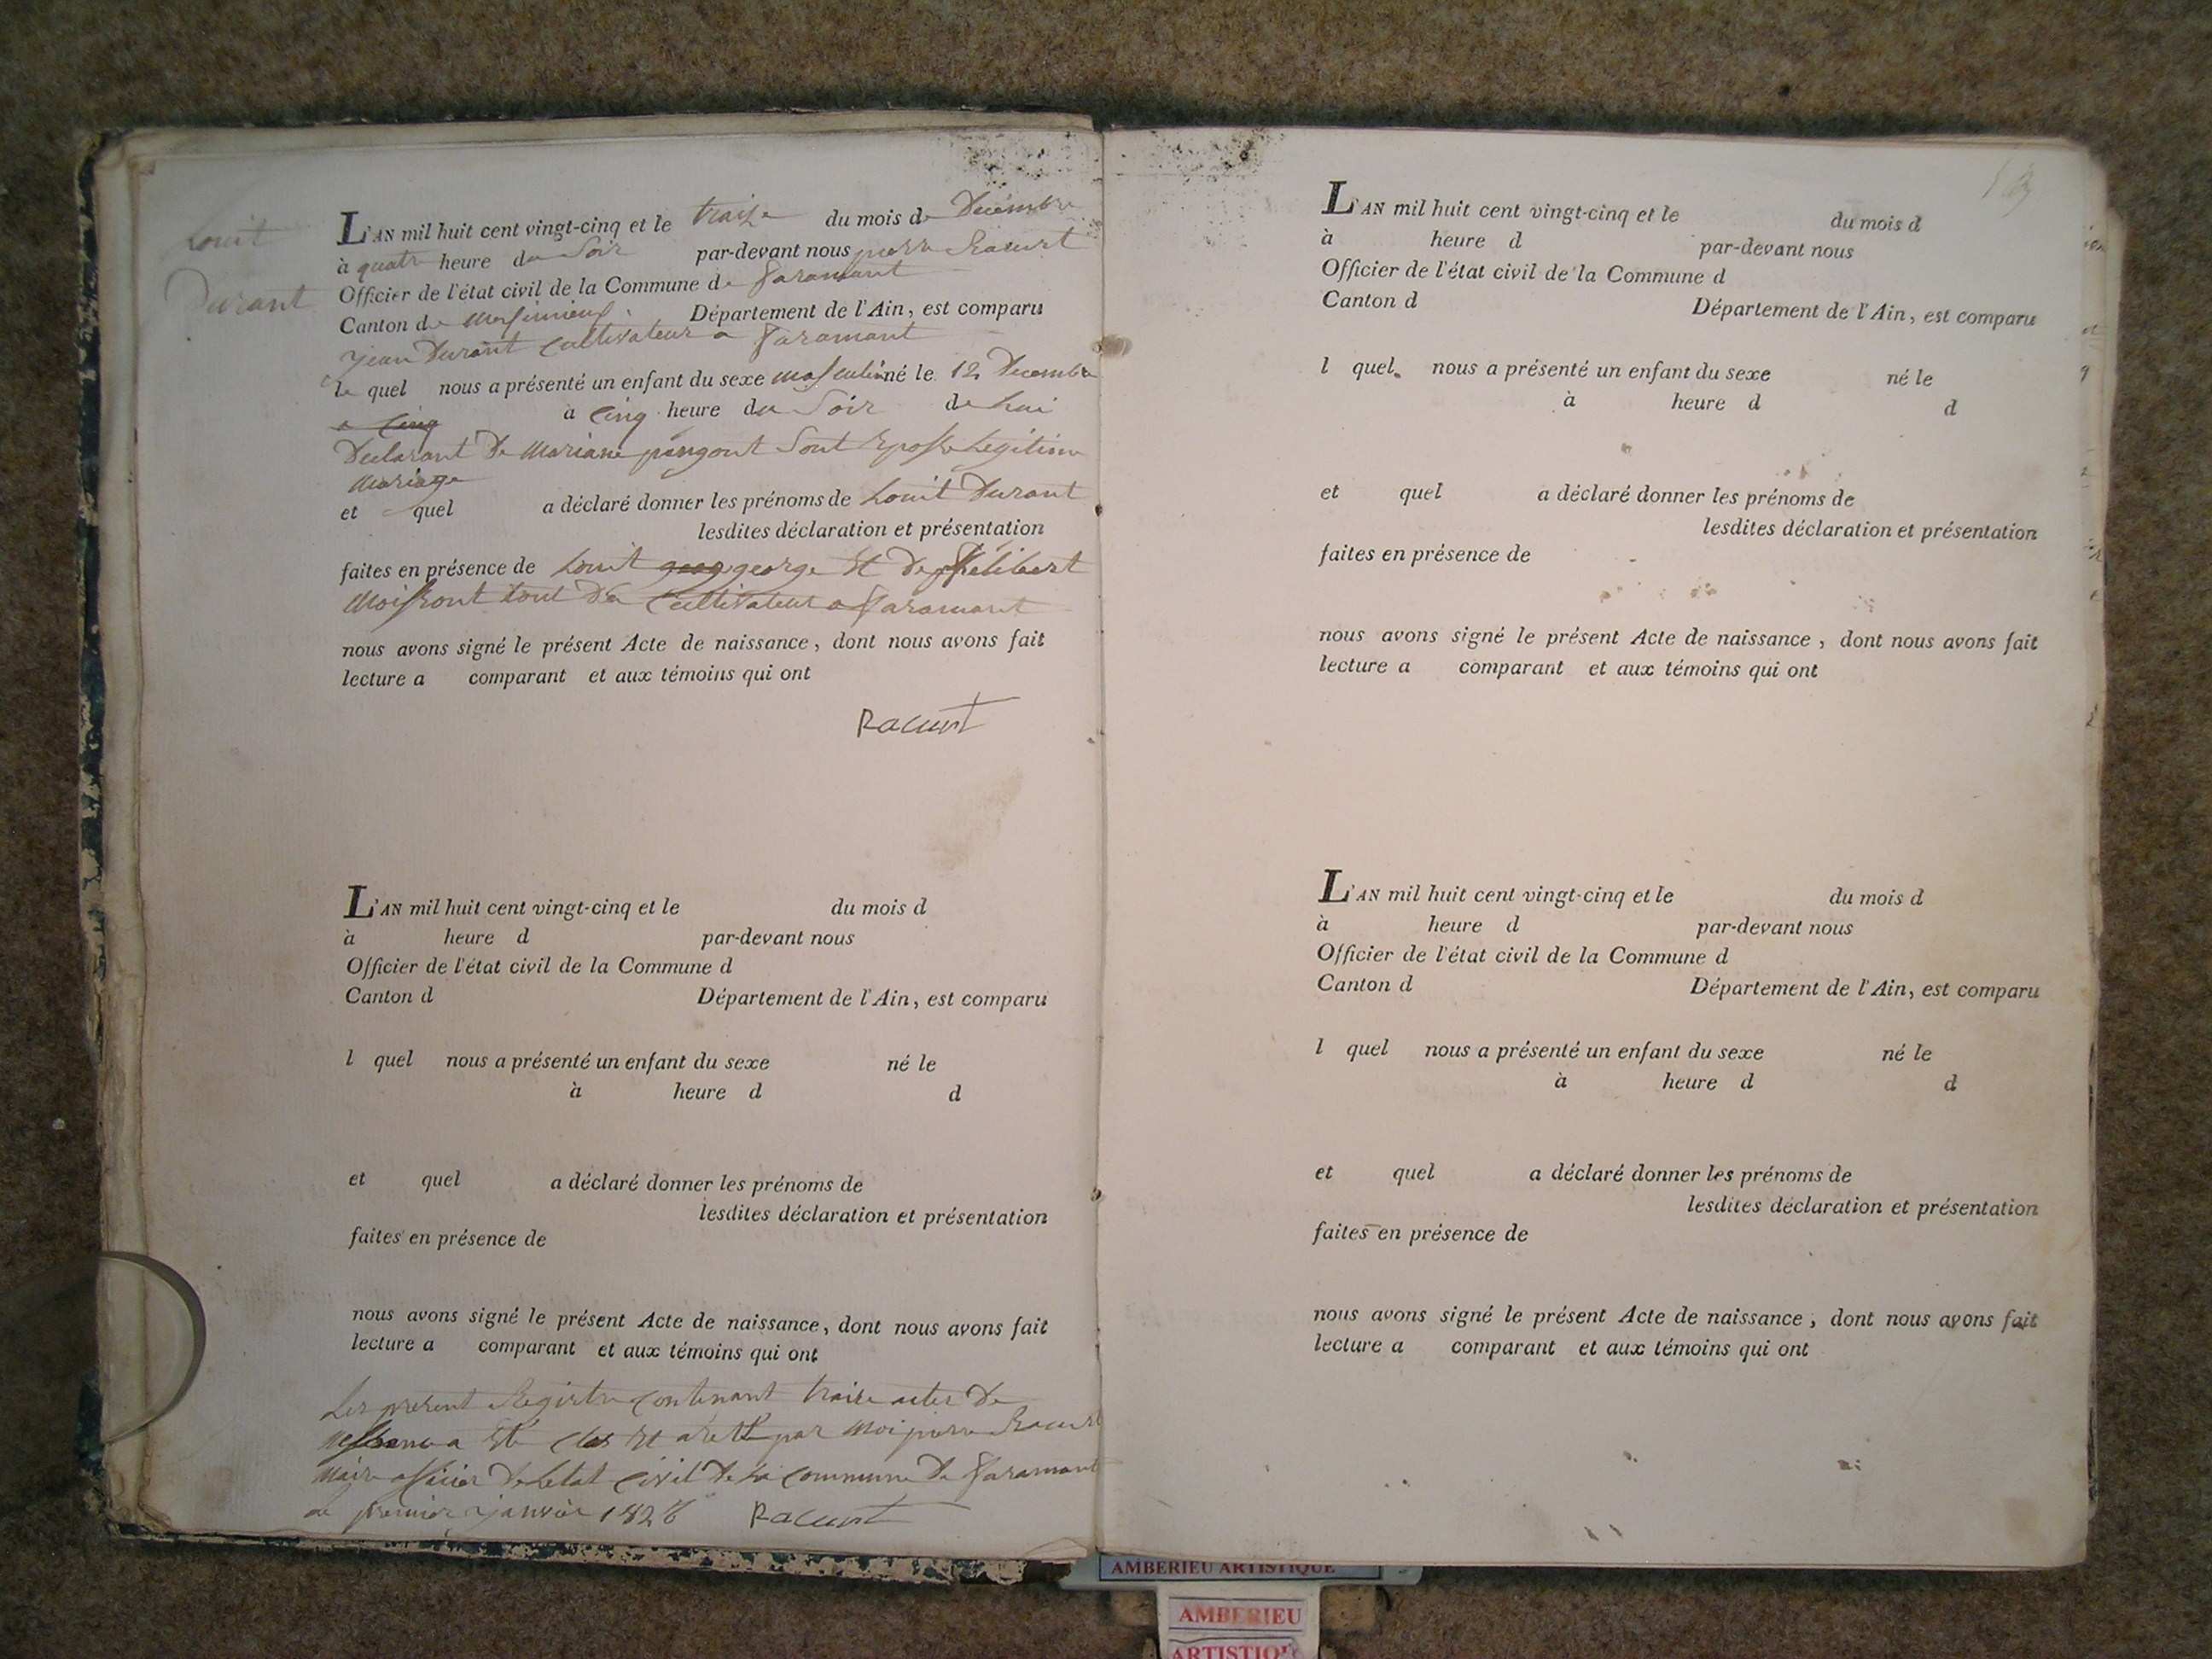 Louit
Durant
L'AN mil huit cent vingt-cinq et le traize du mois de Decembre
à quatr heure du Soir par-devant nous pierre Racurt
Officier de l'état civil de la Commune de faramant
Canton de Meximieux Département de l'Ain, est comparu
jean Durant cultivateur a faramant
le quel nous a présenté un enfant du sexe masculin né le 12 Decembre
a cinq à cinq heure du Soir de lui
Declarant De Mariane pingont Sont Eposse Legitime
Mariage
et quel a déclaré donner les prénoms de Louit Durant
lesdites déclaration et présentation
faites en présence de Louit george Et De philibert
Moissont tout De Cultivateur a faramant
nous avons signé le présent Acte de naissance, dont nous avons fait
lecture a comparant et aux témoins qui ont
Racurt
L'AN mil huit cent vingt-cinq et le du mois d
à heure d par-devant nous
Officier de l'état civil de la Commune d
Canton d Département de l'Ain, est comparu
l quel nous a présenté un enfant du sexe né le
à heure d d
et quel a déclaré donner les prénoms de
lesdites déclaration et présentation
faites en présence de
nous avons signé le présent Acte de naissance, dont nous avons fait
lecture a comparant et aux témoins qui ont
Les present Registre contenant traize actes De
a Eté clos Et areté par Moi pierre Racurt
Maire officier De Letat Civil De La commune De faramant
Le premier janvier 1826 Racurt
L'AN mil huit cent vingt-cinq et le du mois d
à heure d par-devant nous
Officier de l'état civil de la Commune d
Canton d Département de l'Ain, est comparu
l quel nous a présenté un enfant du sexe né le
à heure d d
et quel a déclaré donner les prénoms de
lesdites déclaration et présentation
faites en présence de
nous avons signé le présent Acte de naissance, dont nous avons fait
lecture a comparant et aux témoins qui ont
L'AN mil huit cent vingt-cinq et le du mois d
à heure d par-devant nous
Officier de l'état civil de la Commune d
Canton d Département de l'Ain, est comparu
l quel nous a présenté un enfant du sexe né le
à heure d d
et quel a déclaré donner les prénoms de
lesdites déclaration et présentation
faites en présence de
nous avons signé le présent Acte de naissance, dont nous avons fait
lecture a comparant et aux témoins qui ont
AMBERIEU ARTISTIQUE
AMBERIEU
ARTISTIQUE